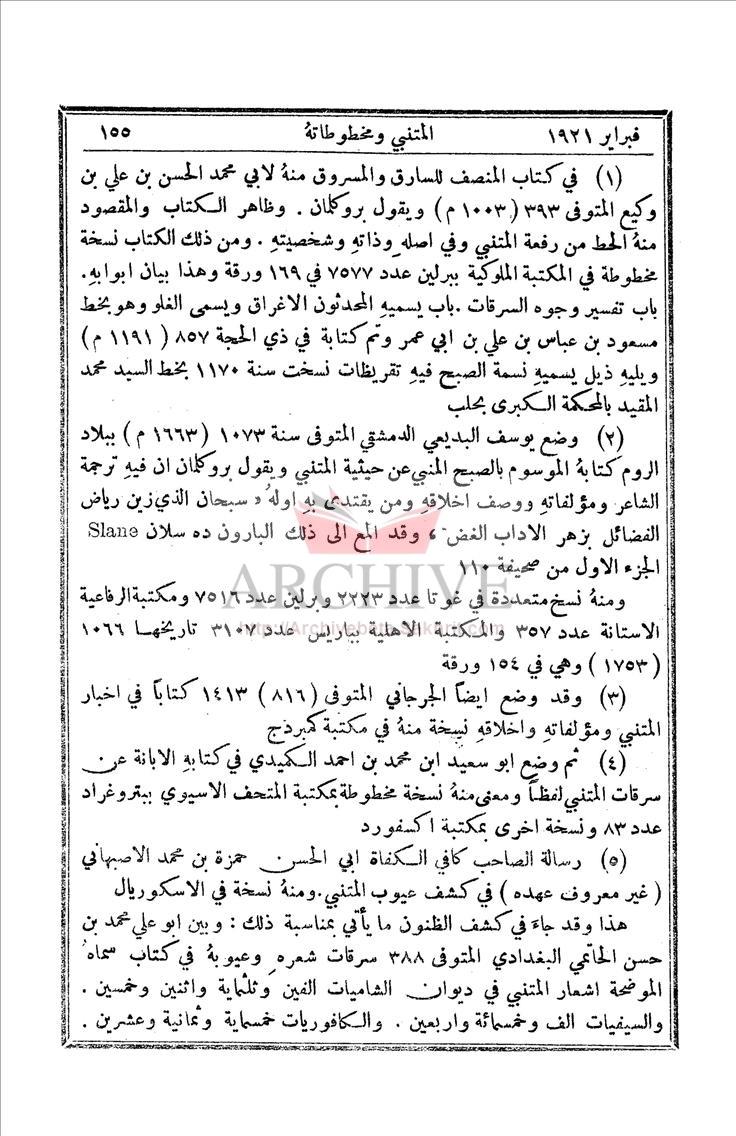 فبراير ١٩٢١ المتنبي ومخطوطاتهُ ١٥٥
(١) في كتاب المنصف للسارق والمسروق منهُ لابي محمد الحسن بن علي بن
وكيع المتوفى ٣٩٣ (١٠٠٣ م) ويقول بروكلمان . وظاهر الكتاب والمقصود
منهُ الحط من رفعة المتنبي وفي اصلهِ وذاتهِ وشخصيتهِ . ومن ذلك الكتاب نسخة
مخطوطة في المكتبة الملوكية ببرلين عدد ٧٥٧٧ في ١٦٩ ورقة وهذا بيان ابوابهِ.
باب تفسير وجوه السرقات .باب يسميهِ المحدثون الاغراق ويسمى الغلو وهو بخط
مسعود بن عباس بن علي بن ابي عمر وتم كتابة في ذي الحجة ٨٥٧ (١١٩١ م)
ويليهِ ذيل يسميهِ نسمة الصبح فيهِ تقريظات نسخت سنة ١١٧٠ بخط السيد محمد
المقيد بالمحكمة الكبرى بحلب
(٢) وضع يوسف البديعي الدمشقي المتوفى سنة ١٠٧٣ (١٦٦٣ م) ببلاد
الروم كتابهُ الموسوم بالصبح المنبي عن حيثية المتنبي ويقول بروكلمان ان فيهِ ترجمة
الشاعر ومؤلفاتهِ ووصف اخلاقهِ ومن يقتدى بهِ اولهُ « سبحان الذي زين رياض
الفضائل بزهر الاداب الغض » وقد المع الى ذلك البارون ده سلان Slane
الجزء الاول من صحيفة ١١٠
ومنهُ نسخ متعددة في غوتا عدد ٢٢٢٣ وبرلين عدد ٧٥١٦ ومكتبة الرفاعية
الاستانة عدد ٣٥٧ والمكتبة الاهلية بباريس عدد ٣١٠٧ تاريخها ١٠٦٦
(١٧٥٣) وهي في ١٥٤ ورقة
(٣) وقد وضع ايضاً الجرجاني المتوفى (٨١٦) ١٤١٣ كتاباً في اخبار
المتنبي ومؤلفاتهِ واخلاقهِ نسخة منهُ في مكتبة كمبردج
(٤) ثم وضع ابو سعيد ابن محمد بن احمد الكميدي في كتابهِ الابانة عن
سرقات المتنبي لفظاً ومعنى منهُ نسخة مخطوطة بمكتبة المتحف الاسيوي ببتروغراد
عدد ٨٣ ونسخة اخرى بمكتبة اكسفورد
(٥) رسالة الصاحب كافي الكفاة ابي الحسن حمزة بن محمد الاصبهاني
(غير معروف عهده) في كشف عيوب المتنبي.ومنهُ نسخة في الاسكوريال
هذا وقد جاءَ في كشف الظنون ما يأتي بمناسبة ذلك : وبين ابو علي محمد بن
حسن الحاتمي البغدادي المتوفى ٣٨٨ سرقات شعرهِ وعيوبهُ في كتاب سماهُ
الموضحة اشعار المتنبي في ديوان الشاميات الفين وثلثماية واثنين وخمسين .
والسيفيات الف وخمسمائة واربعين . والكافوريات خمسماية وثمانية وعشرين .
ARCHIVE
http://Archivebeta.Sakhrit.com